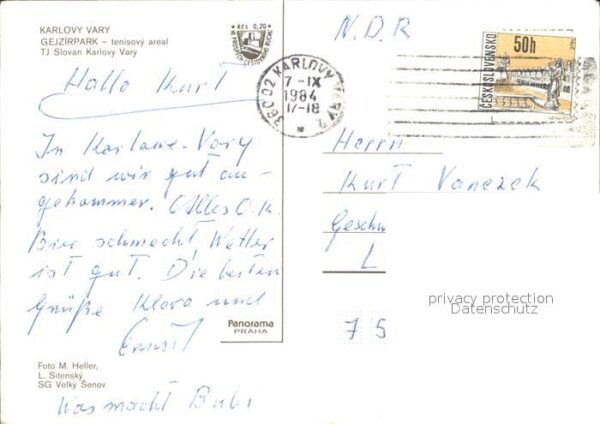 KARLOVY VARY
GEJZÍRPARK – tenisový areal
TJ Slovan Karlovy Vary
Kčs 0,20
N.D.R
ČESKOSLOVENSKO
50h
360 02 KARLOVY VARY 2
7.-IX
1984
17-18
Hallo Kurt
In Karlowe-Vary
sind wir gut an-
gekommen. Alles O.K.
Bier schmeckt, Wetter
ist gut. Die besten
Grüße Klara und
Ernst
Was macht Bubi
Herrn
Kurt Vanczek
Geschw
L
75
privacy protection
Datenschutz
Panorama
PRAHA
Foto M. Heller,
L. Sitenský
SG Velký Šenov